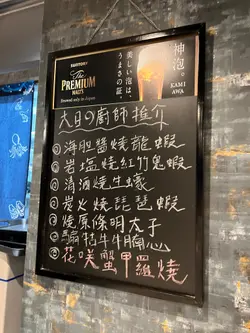 SUNTORY
The
PREMIUM
MALT'S
Brewed only in Japan
美しい泡は、
うまさの証。
神泡
KAMI
AWA
大日の廚師推介
①海胆醬燒龍蝦
②岩塩燒紅竹鬼蝦
③清酒燒生蠔
④炭火燒琵琶蝦
⑤燒原條明太子
⑥騸牯牛牛胸心
⑧花咲蟹甲羅燒